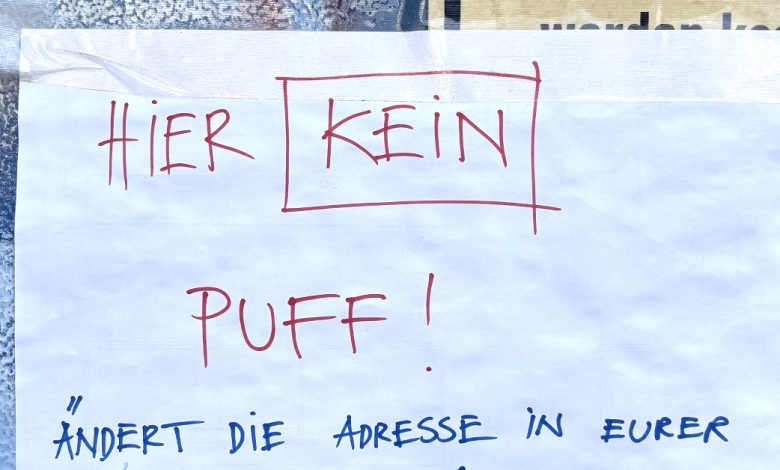 HIER KEIN
PUFF!
ÄNDERT DIE ADRESSE IN EURER